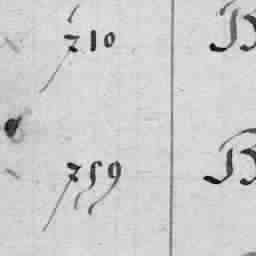 710 B
759 B